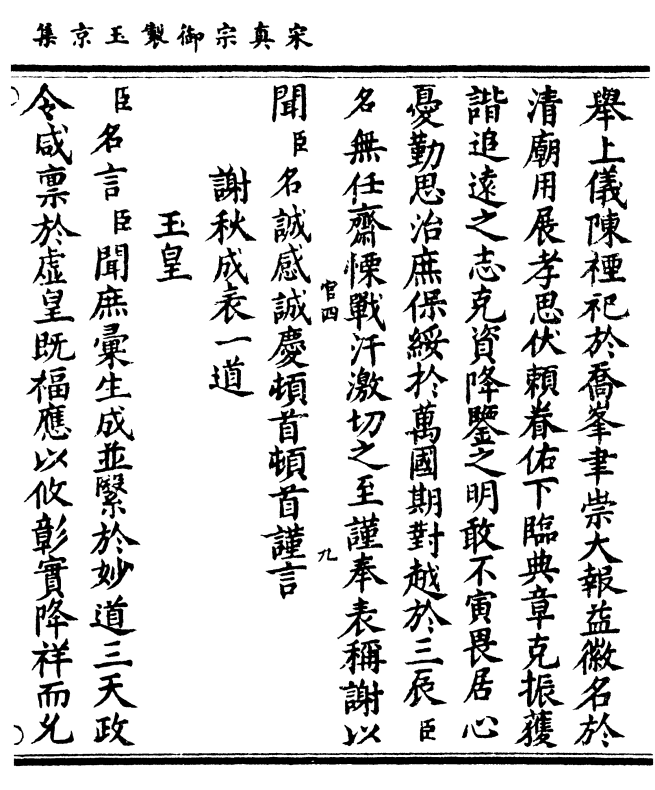 宋真宗御製玉京集
舉上儀陳禋祀於喬峯聿崇大報益徽名於
清廟用展孝思伏賴眷佑下臨典章克振獲
諧追遠之志克資降鑒之明敢不寅畏居心
憂勤思治庶保綏於萬國期對越於三辰臣
名無任齋慄戰汗激切之至謹奉表稱謝以
官四
九
聞臣名誠感誠慶頓首頓首謹言
謝秋成表一道
玉皇
臣名言臣聞庶彙生成並繄於妙道三天政
令咸禀於虛皇既福應以攸彰實降祥而允